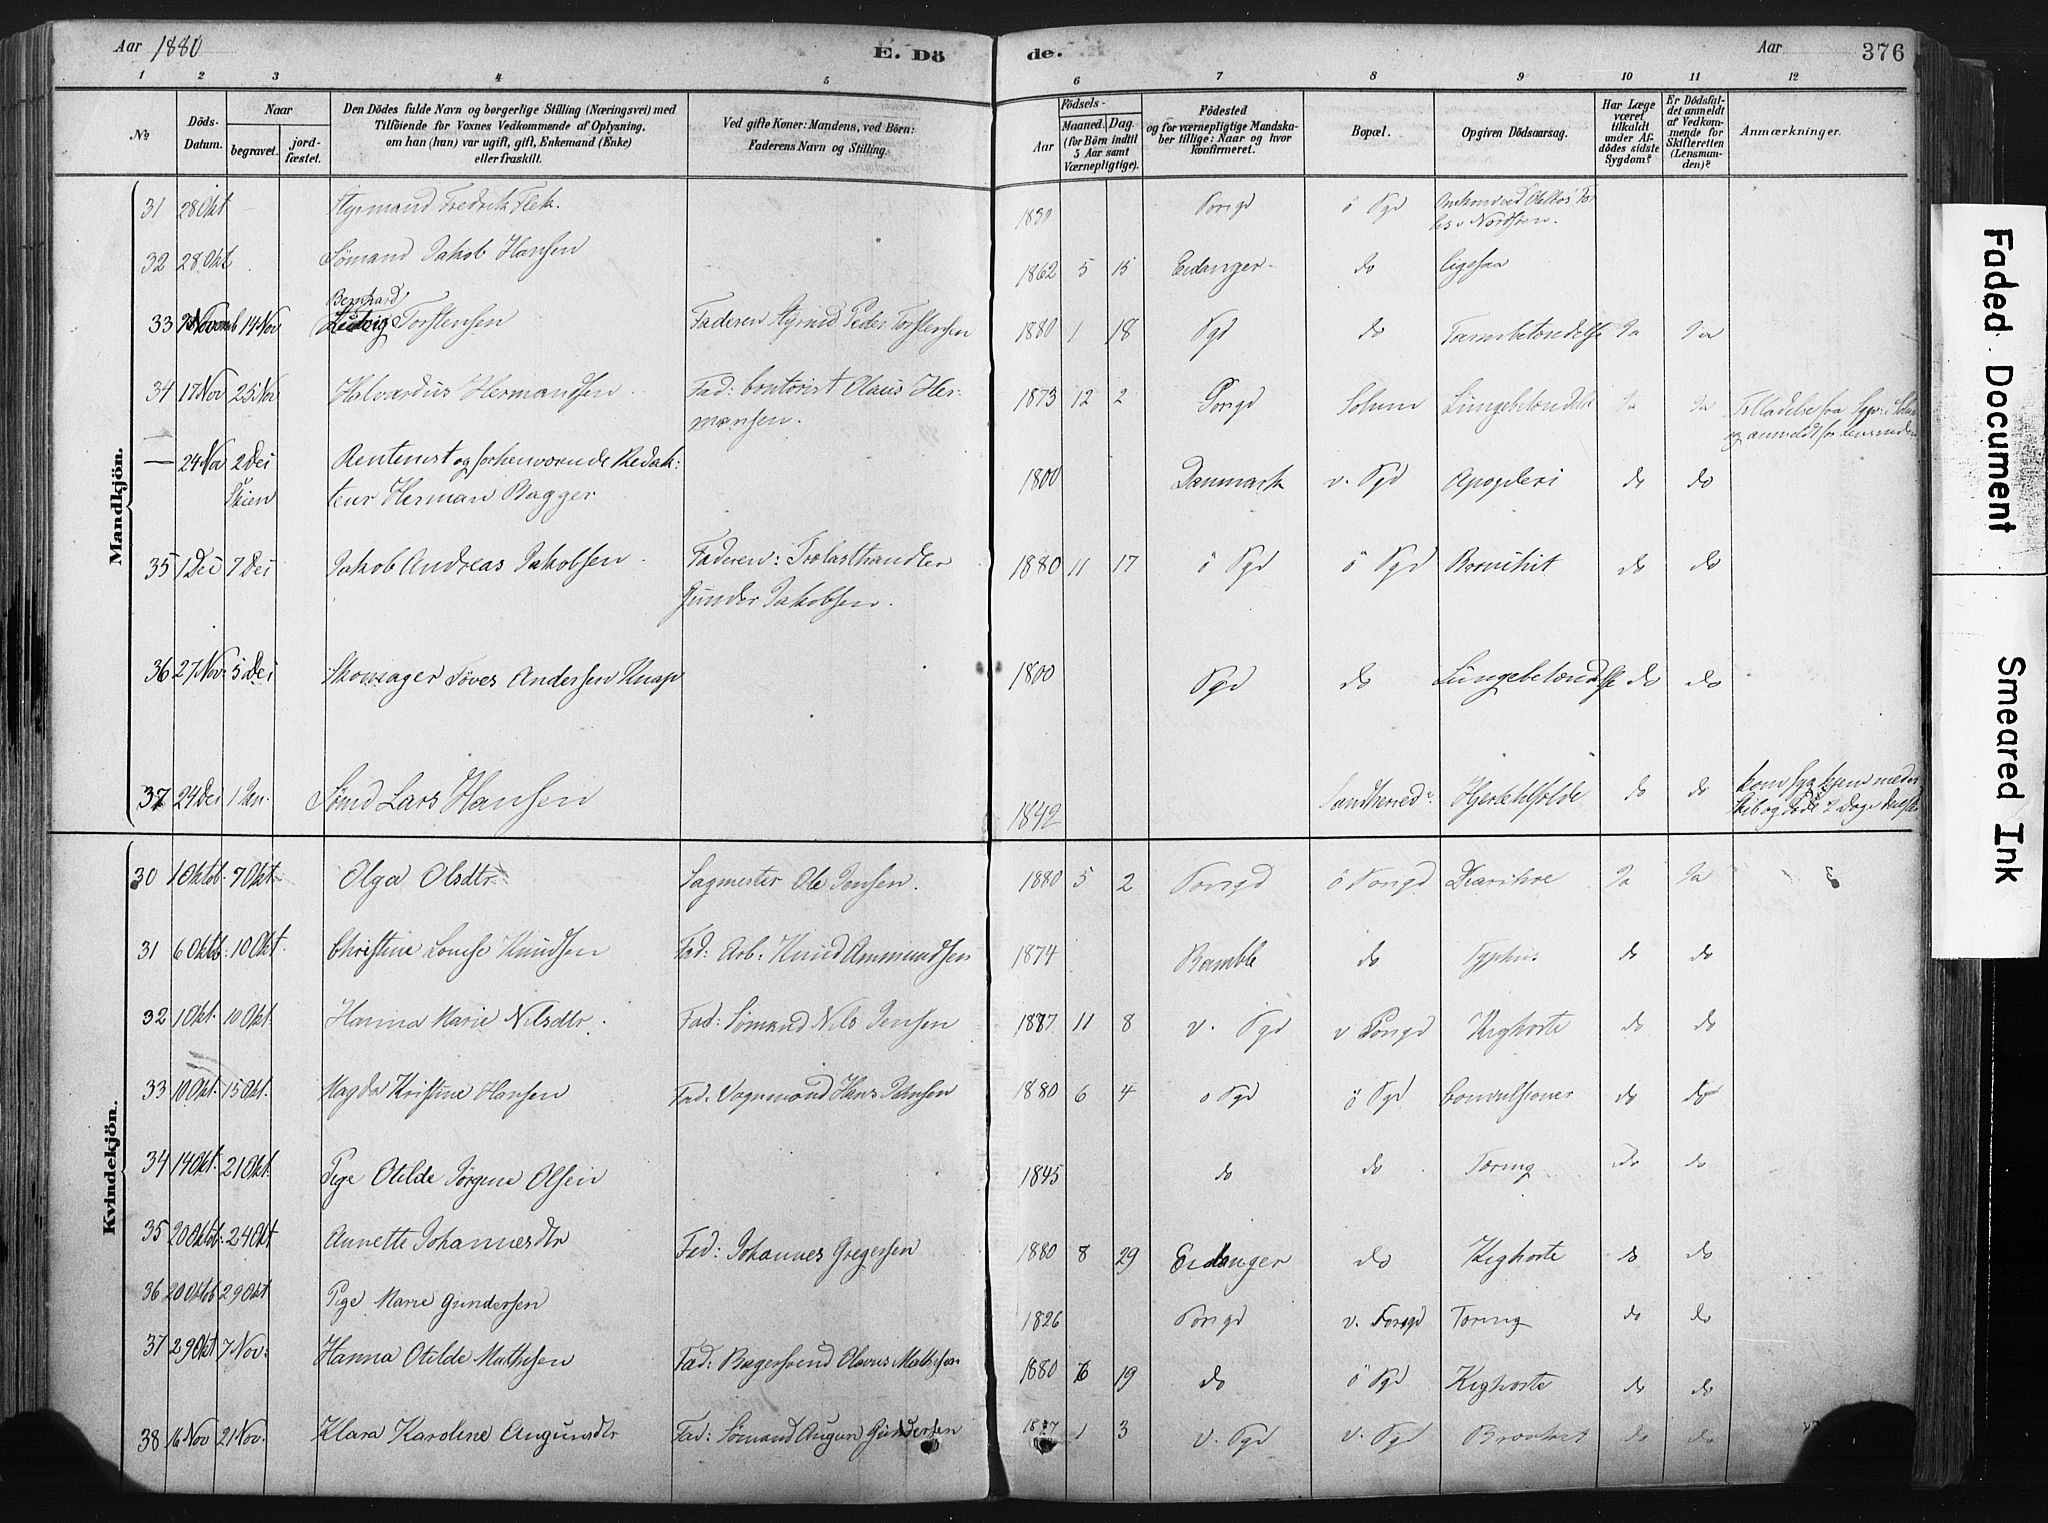 Aar 1880
E. Dö
de.
Aar
376
1 2 3 4 5 6 7 8 9 10 11 12
No
Döds-Datum.
Naar
begravet.
jord-fæstet.
Den Dödes fulde Navn og borgerlige Stilling (Næringsvei) med
Tilföiende for Voxnes Vedkommende af Oplysning,
om han (hun) var ugift, gift, Enkemand (Enke)
eller fraskilt.
Ved gifte Koner: Mandens, ved Börn:
Faderens Navn og Stilling.
Födsels-
Aar
Maaned. Dag.
(for Börn indtil
5 Aar samt
Værnepligtige).
Födested
og for værnepligtige Mandska-
ber tillige: Naar og hvor
konfirmeret.
Bopæl.
Opgiven Dödsaarsag.
Har Læge
været
tilkaldt
under Af-
dödes sidste
Sygdom?
Er Dödsfal-
det anmeldt
af Vedkom-
mende for
Skifteretten
(Lensman-
den)?
Anmærkninger.
Mandkjön.
31 28 Okt - Styrmand Fredrik Flek. 1830 Porsgd ö Pgd
Nordsöen.
32 28 Okt Sömand Jakob Hansen 1862 5 15 Eidanger do ligesaa
Bernhard
33 Novemb 14 Nov Ludvig Torstensen Faderen Styrmd Peder Torstensen 1880 1 18 Pgd do Tarmbetændelse Ja Ja
34 17 Nov 25 Nov Halvardus Hermandsen Fad: Contorist Olaus Her-
mansen. 1873 12 2 Porsgd Solum Lungebetændelse Ja Ja Tilladelse fra Sgpr. i Solum
og anmeldt for Lensmanden
— 24 Nov 2 Dec Rentenist og forhenværende Redak:
Skien teur Herman Bagger 1800 Danmark v. Pgd Apoplexi do do
35 1 Dec 7 Dec Jakob Andreas Jakobsen Faderen: Trælasthandler
Gunder Jakobsen. 1880 11 17 ö Pgd ö Pgd Bronchit do do
36 27 Nov 5 Dec Skomager Töves Andersen Knap 1800 Pgd do Lungebetændelse do do
37 24 Dec 1 Jan. Sömd Lars Hansen 1842 Sandherred Hjertelfeilde do do kom syg hjem med
Skib og döde 2 Dage derefter
Kvindekjön.
30 1 Oktob. 7 Okt Olga Olsdtr Sagmester Ole Jensen. 1880 5 2 Porsgd ö Porsgd Diarrhoe Ja Ja
31 6 Oktb. 10 Okt. Christine Louise Knudsen Fad: Arb. Knud Ammundsen 1874 Bamble do Typhus do do
32 1 Okt. 10 Okt. Hanna Marie Nilsdtr. Fad: Sömand Nils Jensen 1877 11 8 v. Pgd v Porsgd Kighoste do do
33 10 Okt. 15 Okt. Magda Kristine Hansen Fad. Vognmand Hans Johnsen 1880 6 4 ö Pgd ö Pgd Convulsioner do do
34 14 Okt. 21 Okt. Pige Otilde Jörgine Olsen 1845 do do Tæring do do
35 20 Oktob. 24 Okt Annette Johannesdtr Fad: Johannes Gregersen 1880 8 29 Eidanger do Kighoste do do
36 20 Oktb 29 Okt Pige Marie Gundersen 1826 Porsgd v. Porsgd Tæring do do
37 29 Okt 7 Nov: Hanna Otilde Mathisen Fad: Bagersvend Olavus Mathisen 1880 6 19 do ö Pgd Kighoste do do
38 16 Nov 21 Nov. Klara Karoline Augunsdtr Fad: Sömand Augun Gundersen 1877 1 3 v. Pgd v. Pgd do do
Faded Document
Smeared Ink